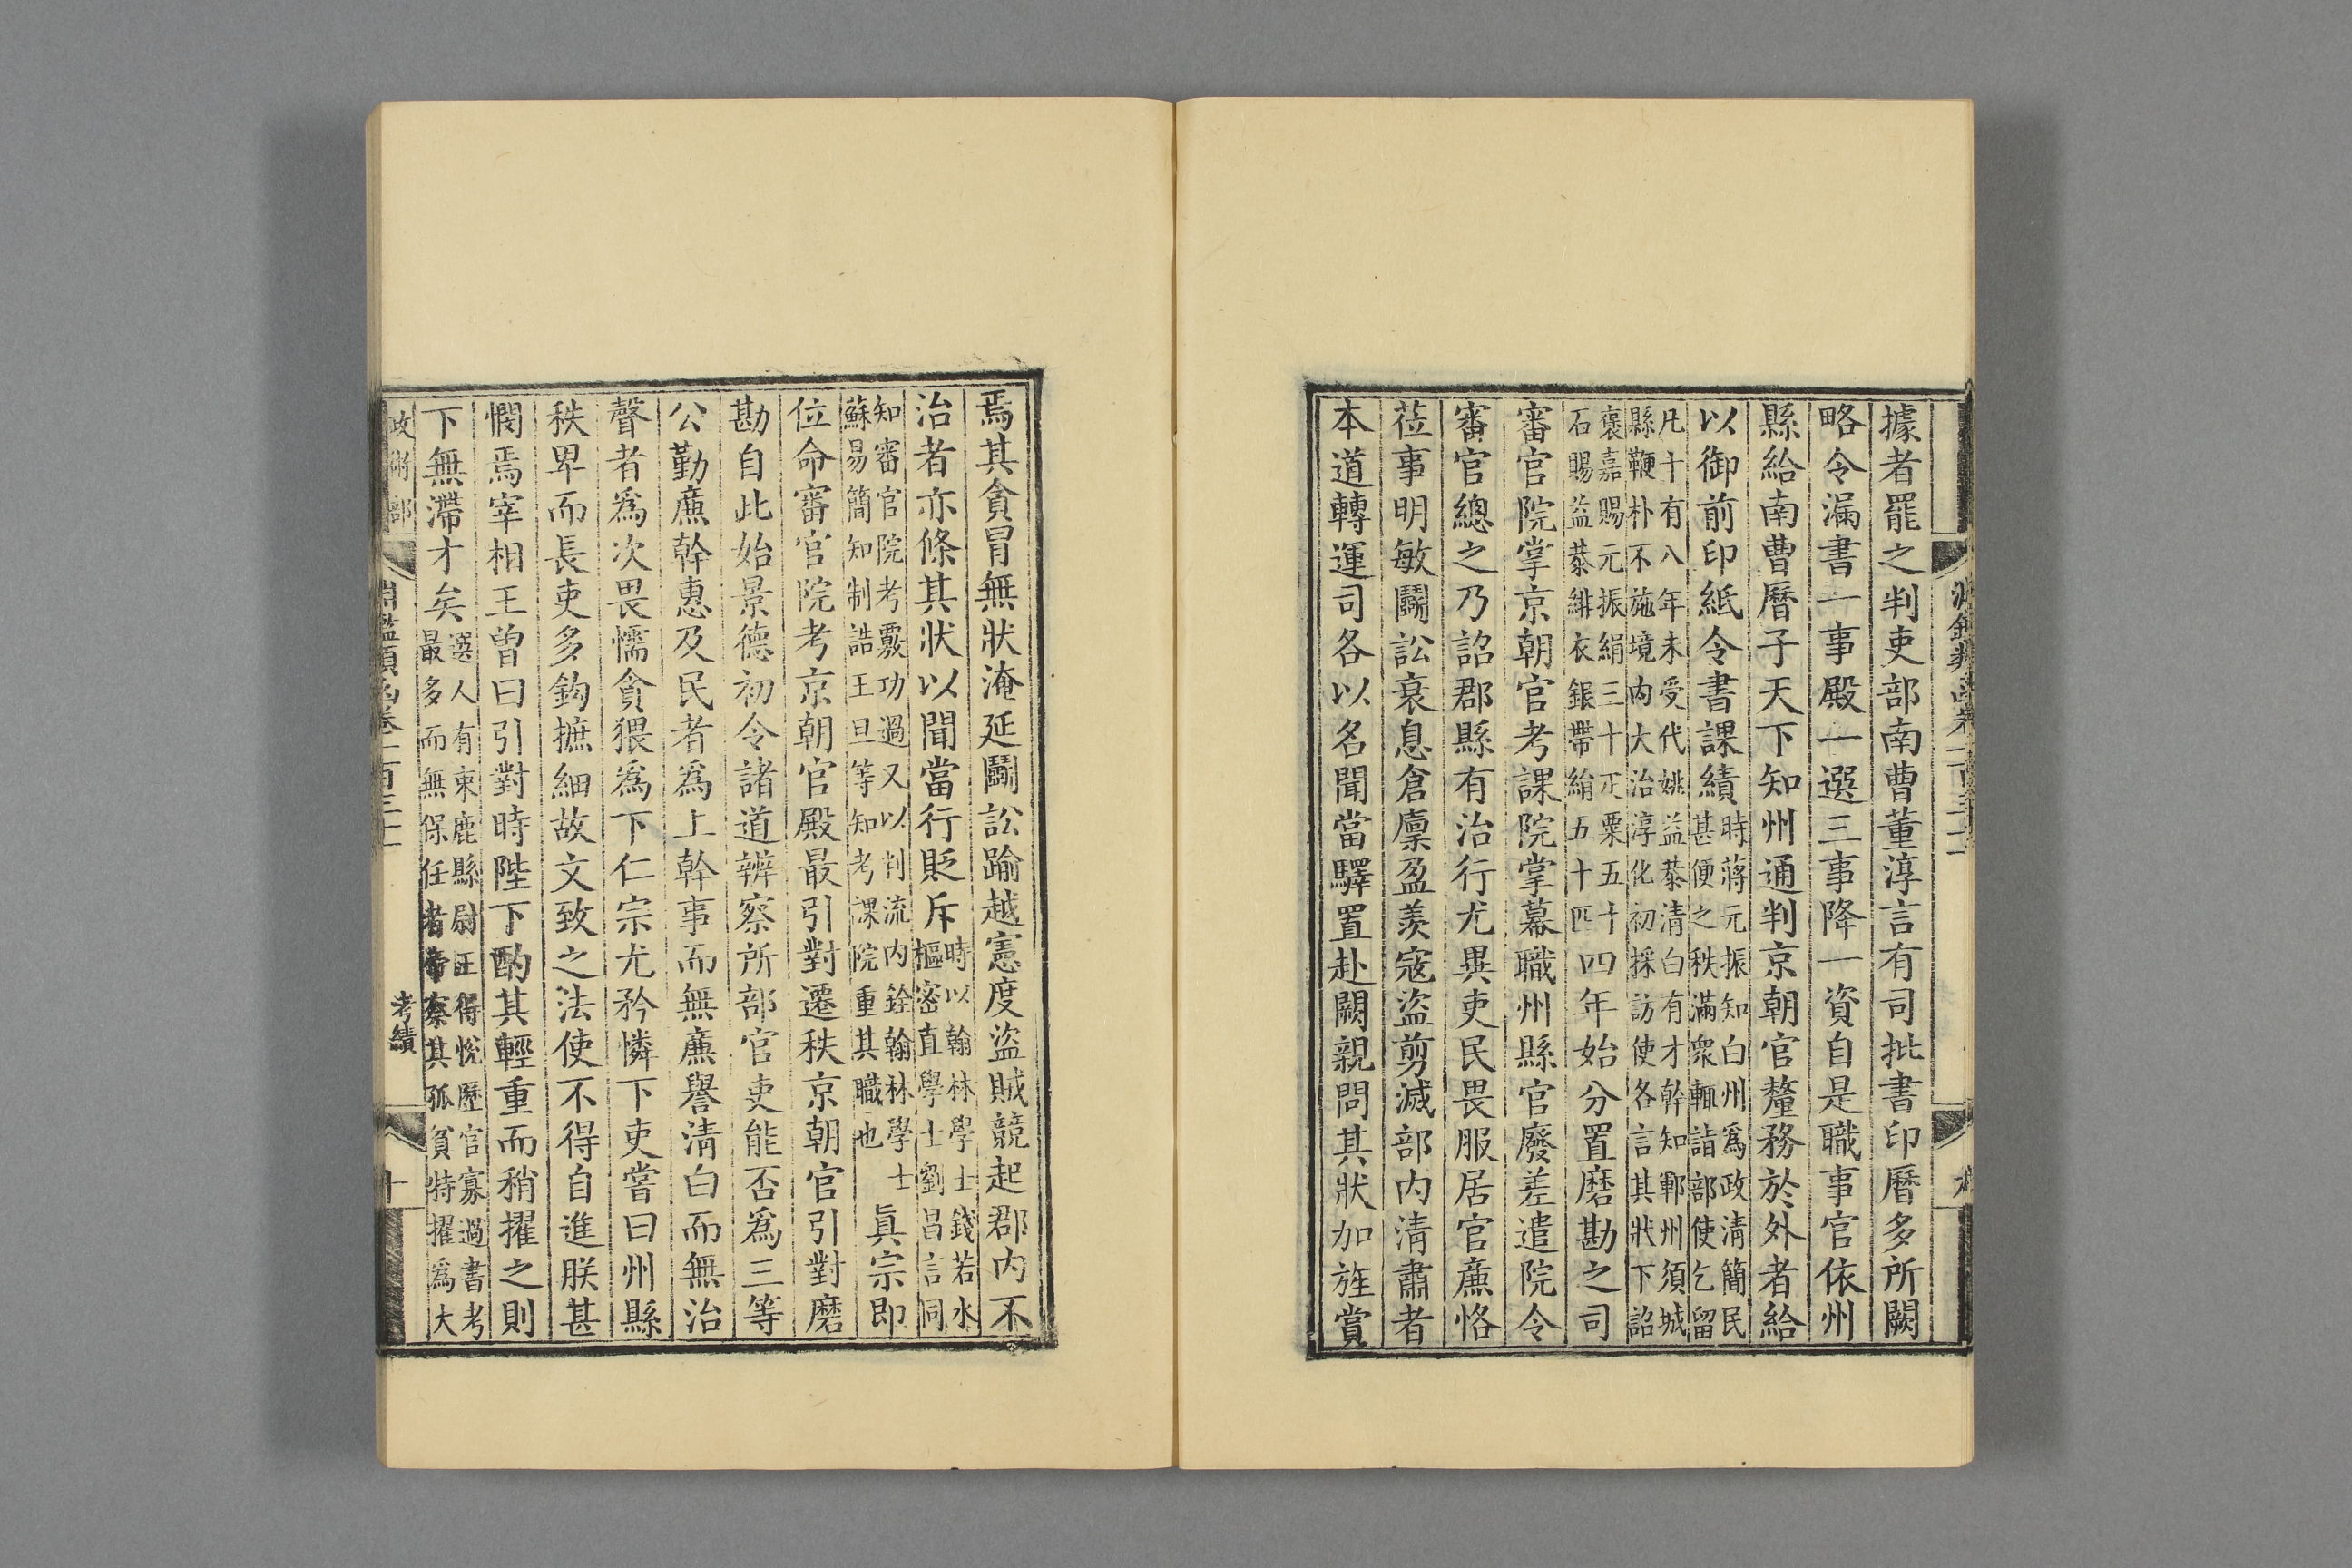 淵鑑類函卷一百三十二
九
據者罷之判吏部南曹董淳言有司批書印曆多所闕
略令漏書一事殿一選三事降一資自是職事官依州
縣給南曹曆子天下知州通判京朝官釐務於外者給
以御前印紙令書課績
時蔣元振知白州爲政淸簡民
甚便之秩滿衆輒詣部使乞留
凡十有八年未受代姚益恭清白有才幹知鄆州須城
縣鞭朴不施境内大治淳化初採訪使各言其狀下詔
襃嘉賜元振絹三十疋粟五十
石賜益恭緋衣銀帶絹五十匹
四年始分置磨勘之司
審官院掌京朝官考課院掌幕職州縣官廢差遣院令
審官總之乃詔郡縣有治行尤異吏民畏服居官廉恪
莅事明敏鬭訟衰息倉廩盈羨寇盜剪滅部内清肅者
本道轉運司各以名聞當驛置赴闕親問其狀加旌賞
焉其貪冒無狀淹延鬭訟踰越憲度盜賊競起郡内不
治者亦條其狀以聞當行貶斥
時以翰林學士錢若水
樞密直學士劉昌言同
知審官院考覈功過又以判流内銓翰林學士
蘇易簡知制誥王旦等知考課院重其職也
眞宗卽
位命審官院考京朝官殿最引對遷秩京朝官引對磨
勘自此始景德初令諸道辨察所部官吏能否爲三等
公勤廉幹惠及民者爲上幹事而無廉譽清白而無治
聲者爲次畏懦貪猥爲下仁宗尤矜憐下吏嘗曰州縣
秩卑而長吏多鈎摭細故文致之法使不得自進朕甚
憫焉宰相王曾曰引對時陛下酌其輕重而稍擢之則
下無滯才矣
選人有束鹿縣尉王得悅歷官寡過書考
最多而無保任者帝察其孤貧特擢爲大
政術部
淵鑑類函卷一百三十二
考績
十